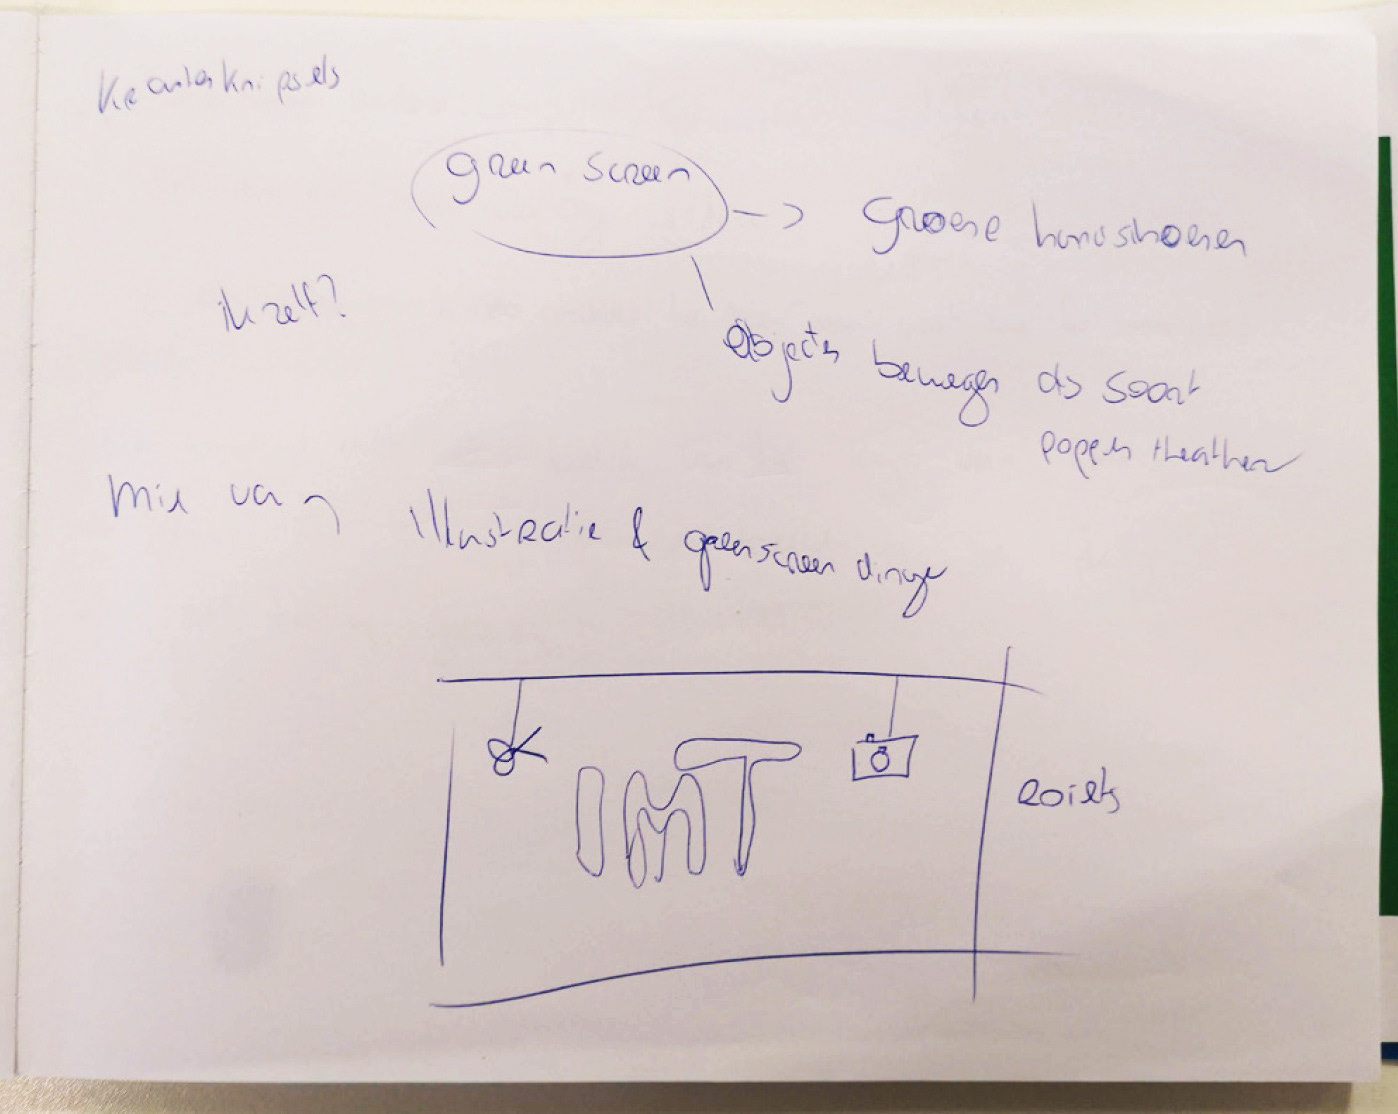 Krantenknipsels
green screen
groene handschoenen
ik zelf?
Objecten bewegen als soort
poppen theather
Mix van illustratie & greenscreen dingen
IMT